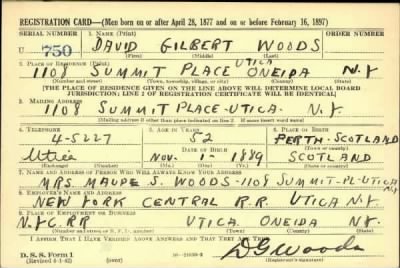 REGISTRATION CARD—(Men born on or after April 28, 1877 and on or before February 16, 1897)
SERIAL NUMBER 1. NAME (Print) ORDER NUMBER
U 750 DAVID GILBERT WOODS
(First) (Middle) (Last)
2. PLACE OF RESIDENCE (Print)
1108 SUMMIT PLACE UTICA ONEIDA N.Y
(Number and street) (Town, township, village, or city) (County) (State)
[THE PLACE OF RESIDENCE GIVEN ON THE LINE ABOVE WILL DETERMINE LOCAL BOARD
JURISDICTION; LINE 2 OF REGISTRATION CERTIFICATE WILL BE IDENTICAL]
3. MAILING ADDRESS
1108 SUMMIT PLACE-UTICA. N.Y.
[Mailing address if other than place indicated on line 2. If same insert word same]
4. TELEPHONE 5. AGE IN YEARS 6. PLACE OF BIRTH
4-5227 52 PERTH-SCOTLAND
DATE OF BIRTH (Town or county)
Utica NOV. 1- 1889 SCOTLAND
(Exchange) (Number) (Mo.) (Day) (Yr.) (State or country)
7. NAME AND ADDRESS OF PERSON WHO WILL ALWAYS KNOW YOUR ADDRESS
MRS MAUDE S. WOODS-1108 SUMMIT-PL-UTICA N.Y.
8. EMPLOYER'S NAME AND ADDRESS
NEW YORK CENTRAL R.R. UTICA N.Y
9. PLACE OF EMPLOYMENT OR BUSINESS
N.Y.C R.R UTICA ONEIDA N.Y
(Number and street or R. F. D. number) (Town) (County) (State)
I AFFIRM THAT I HAVE VERIFIED ABOVE ANSWERS AND THAT THEY ARE TRUE.
D. S. S. Form 1
(Revised 4-1-42) (over) D G Woods
(Registrant's signature)